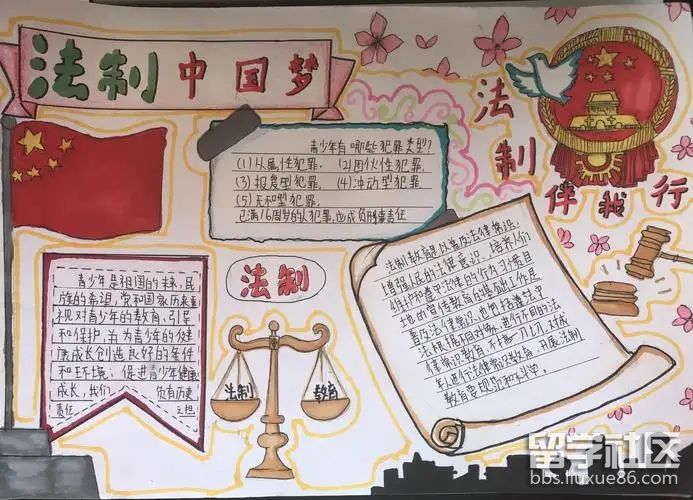 法制中国梦
法制
伴我行
青少年有哪些犯罪类型?
(1)从属性犯罪, (2)团伙性犯罪,
(3)报复型犯罪, (4)冲动型犯罪,
(5)无知型犯罪,
已满16周岁的人犯罪,应成负刑事责任
法制
青少年是祖国的未来,民
族的希望,党和国家历来重
视对青少年的教育、引导
和保护,并为青少年的健
康成长创造良好的条件
和环境, 促进青少年健康
成长,我们 负有历史
责任
法制
教育
法制教育是以普及法律常识,
增强人民的法律意识、培养人们
维护和遵守法律的行为习惯为目
地的宣传教育的基础工作是
普及法律常识,也包括遵法守
法根据不同对象,进行不同的法
律常识教育,不搞一刀切,对成
年人进行法律常识教育,开展法制
教育要规范和科学
留学社区
bbs.liuxue86.com